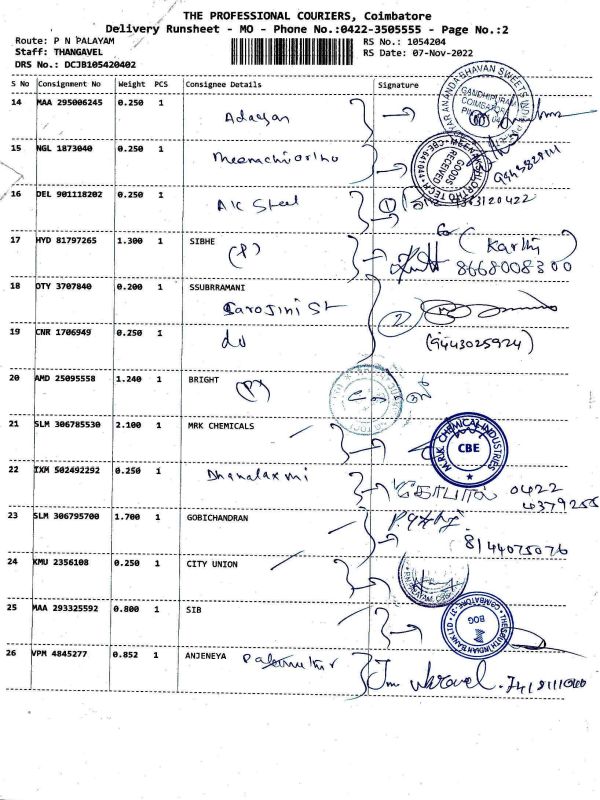 THE PROFESSIONAL COURIERS, Coimbatore
Delivery Runsheet - MO - Phone No.:0422-3505555 - Page No.:2
Route: P N PALAYAM
Staff: THANGAVEL
DRS No.: DCJB105420402
RS No.: 1054204
RS Date: 07-Nov-2022
S No Consignment No Weight PCS Consignee Details Signature
14 MAA 295006245 0.250 1
15 NGL 1873040 0.250 1
16 DEL 901118202 0.250 1 AK Steel
17 HYD 81797265 1.300 1 SIBHE (P) (Karthi)
8668008300
18 OTY 3707840 0.200 1 SSUBRRAMANI
Sarojini St 2
19 CNR 1706949 0.250 1 do
(9443025924)
20 AMD 25095558 1.240 1 BRIGHT (P)
21 SLM 306785530 2.100 1 MRK CHEMICALS
M.R.K. CHEMICAL INDUSTRIES
CBE
22 IXM 502492292 0.250 1 Dhanalaxmi கோபால் 0422
4379255
23 SLM 306795700 1.700 1 GOBICHANDRAN
8144075076
24 KMU 2356108 0.250 1 CITY UNION
25 MAA 293325592 0.800 1 SIB
THE SOUTH INDIAN BANK LTD
COIMBATORE - 37
BOG
26 VPM 4845277 0.852 1 ANJENEYA